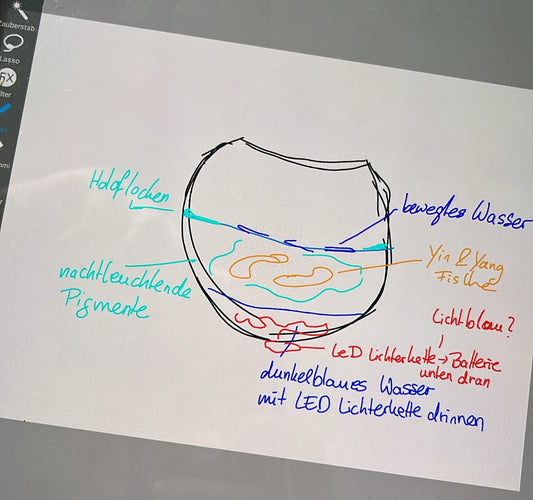 Zauberstab
Lasso
FX
Holoflocken
bewegtes Wasser
Yin & Yang
Fische
nachtleuchtende
Pigmente
Lichtblau?
LeD Lichterkette → Batterie
unten dran
dunkelblaues Wasser
mit LED Lichterkette drinnen